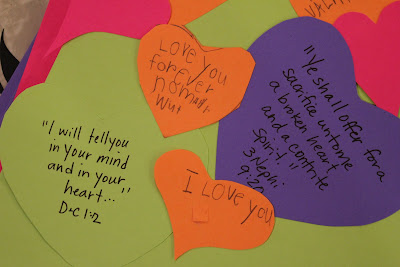 "I will tell you
in your mind
and in your
heart..."
D+C 1:2
Love you
forever
no matter
Wut
"Ye shall offer for a
sacrifice unto me
a broken heart
and a contrite
Spirit
3 Nephi
9:20
I LOVE you
VAL